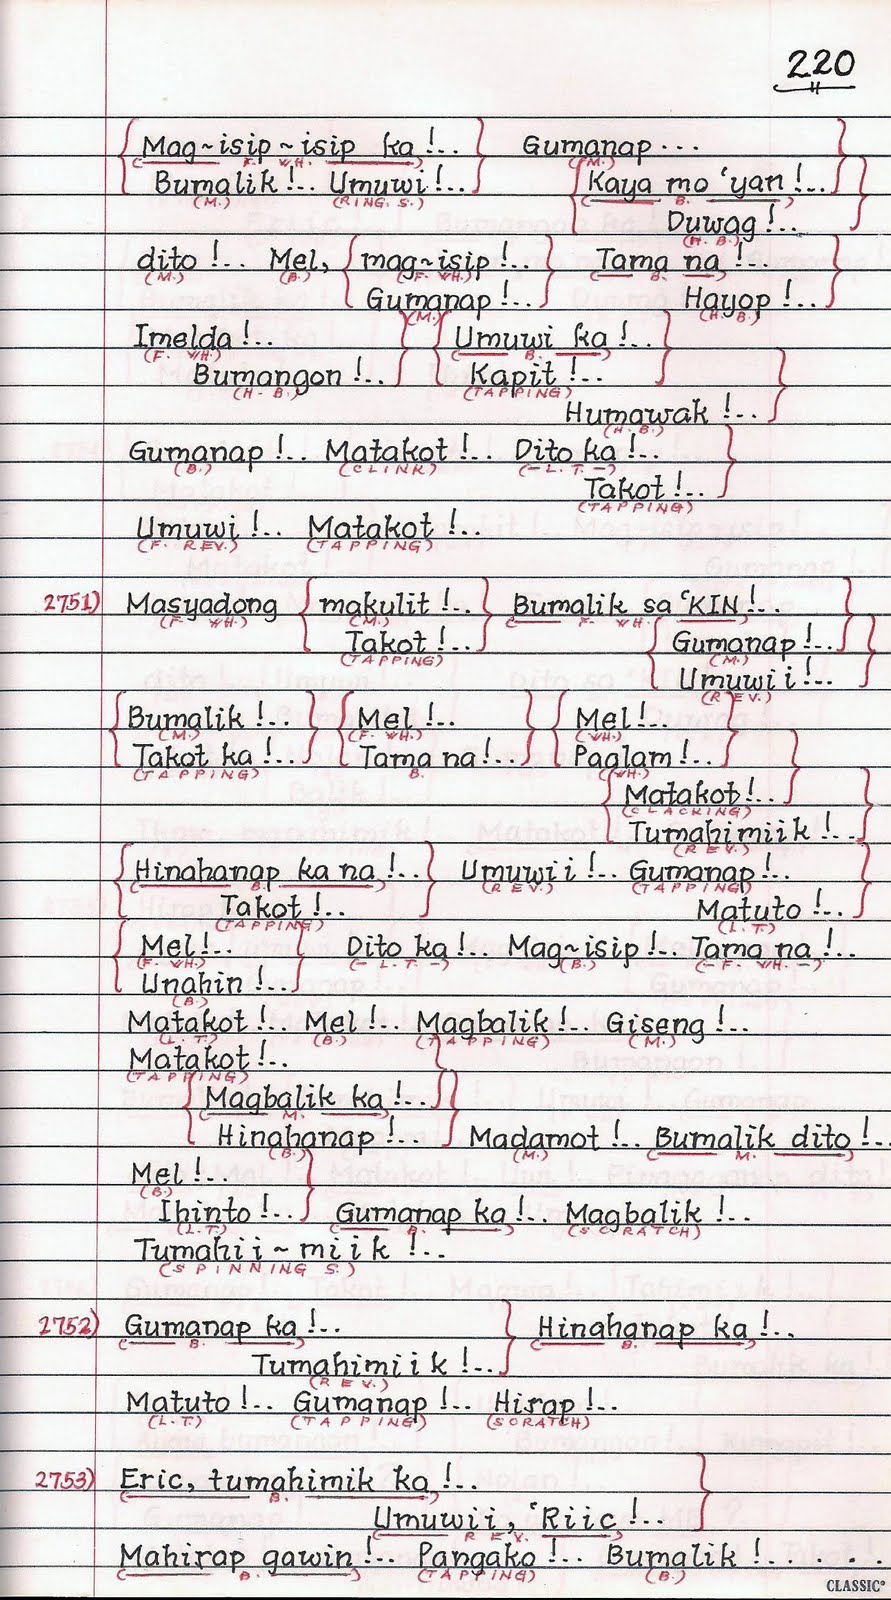 220
Mag~isip~isip ka !.. Gumanap ...
(F. WH.) (M.)
Bumalik !.. Umuwi !.. Kaya mo 'yan !..
(M.) (RING. S.) (B.)
Duwag !..
(H. B.)
dito !.. Mel, mag~isip !.. Tama na !..
(M.) (B.) (F. WH.) (B.)
Gumanap !.. Hayop !..
(M.) (H. B.)
Imelda !.. Umuwi ka !..
(F. WH.) (B.)
Bumangon !.. Kapit !..
(H. B.) (TAPPING)
Humawak !..
(H. B.)
Gumanap !.. Matakot !.. Dito ka !..
(B.) (CLINK) (-L. T.-)
Takot !..
(TAPPING)
Umuwi !.. Matakot !..
(F. REV.) (TAPPING)
2751) Masyadong makulit !.. Bumalik sa 'KIN !..
(F. WH.) (M.) (F. WH.)
Takot !.. Gumanap !..
(TAPPING) (M.)
Umuwii !..
(REV.)
Bumalik !.. Mel !.. Mel !..
(M.) (F. WH.) (WH.)
Takot ka !.. Tama na !.. Paglam !..
(TAPPING) B. (WH.)
Matakot !..
(CLACKING)
Tumahimiik !..
(REV.)
Hinahanap ka na !.. Umuwii !.. Gumanap !..
(B.) (REV.) (TAPPING)
Takot !.. Matuto !..
(TAPPING) (L.T.)
Mel !.. Dito ka !.. Mag~isip !.. Tama na !..
(F. WH.) (-L. T.-) (B.) (-F. WH.-)
Unahin !..
(B.)
Matakot !.. Mel !.. Magbalik !.. Giseng !..
(L.T.) (B.) (TAPPING) (M.)
Matakot !..
(TAPPING)
Magbalik ka !..
(M.)
Hinahanap !.. Madamot !.. Bumalik dito !..
(B.) (M.) (M.)
Mel !..
(B.)
Ihinto !.. Gumanap ka !.. Magbalik !..
(L.T.) (B.) (SCRATCH)
Tumahii~miik !..
(SPINNING S.)
2752) Gumanap ka !.. Hinahanap ka !..
(B.) (B.)
Tumahimiik !..
(REV.)
Matuto !.. Gumanap !.. Hirap !..
(L.T.) (TAPPING) (SCRATCH)
2753) Eric, tumahimik ka !..
(B.)
Umuwii, 'Riic !..
(REV.)
Mahirap gawin !.. Pangako !.. Bumalik !.. . . .
(B.) (TAPPING) (B.)
CLASSIC®